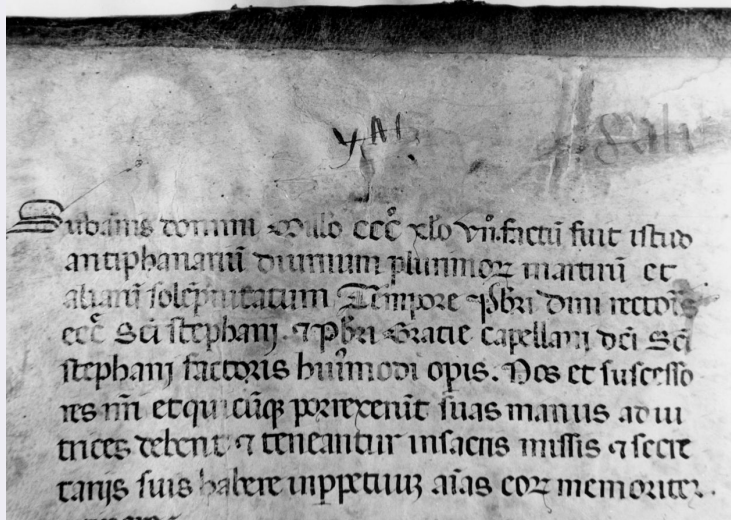 Sub annis domini Millo cccº xlo vii. factū fuit istud
antiphanariū diurnum plurimoꝝ martirū et
aliarū solēpnitatum Tempore Pbri dnī rectoris
ecc̄ Scī stephanj. ⁊ Pbri Gracie capellani dcī Scī
stephanj factoris huiꝰmodi opis. Nos et successo
res nrī et quicūqꝫ porrexerīt suas manus adiu
trices debent ⁊ teneantur in sacris missis ⁊ secre
tarijs suis habere inppetuuꝫ aīas eoꝝ memoriter.